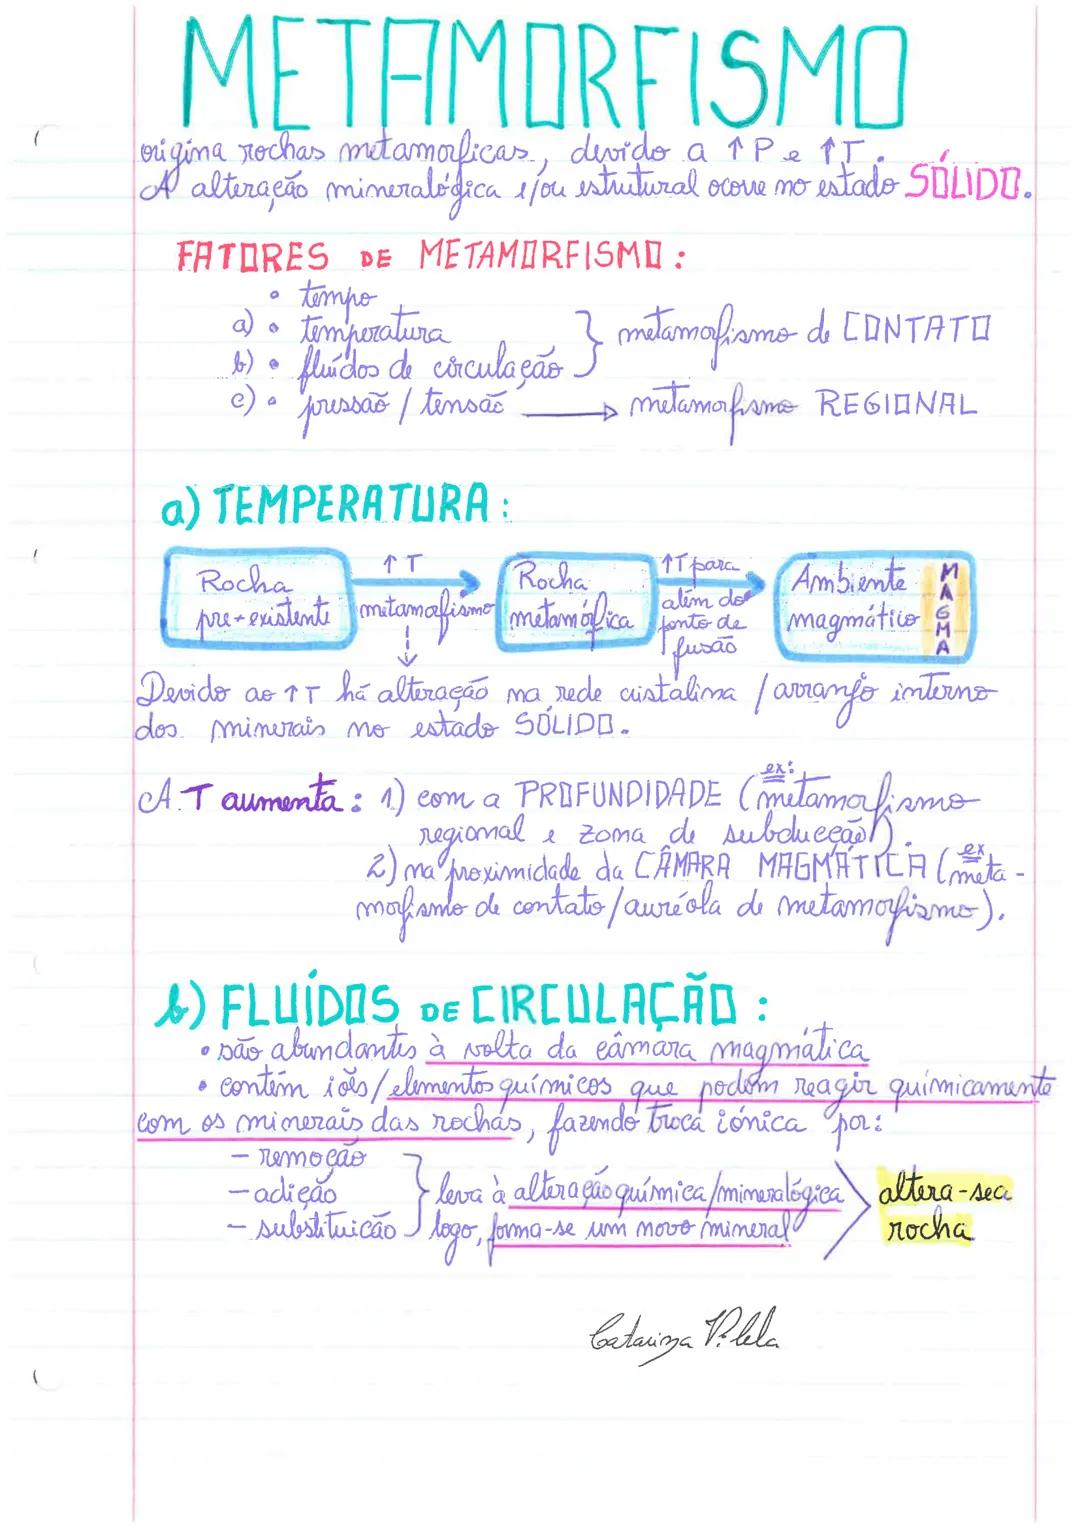 METAMORFISMO
origina rochas metamorficas, devido a ↑P e ↑T.
A alteração mineralógica e/ou estrutural ocorre no estado SÓLIDO.
FATORES DE METAMORFISMO:
• tempo
a) • temperatura } metamorfismo de CONTATO
b) • fluídos de circulação
c) • pressão / tensão → metamorfismo REGIONAL
a) TEMPERATURA:
Rocha pre-existente ↑T metamorfismo Rocha metamórfica ↑T para além do ponto de fusão Ambiente magmático MAGMA
Devido ao ↑T há alteração na rede cristalina / arranjo interno
dos minerais no estado SÓLIDO.
A T aumenta: 1) com a PROFUNDIDADE (ex: metamorfismo
regional e zona de subducção).
2) na proximidade da CÂMARA MAGMÁTICA (ex meta-
morfismo de contato/auréola de metamorfismo).
b) FLUÍDOS DE CIRCULAÇÃO:
• são abundantes à volta da câmara magmática
• contêm iões/elementos químicos que podem reagir químicamente
com os minerais das rochas, fazendo troca iónica por:
- remoção
- adição } leva à alteração química/mineralógica altera-se a
- substituicão logo, forma-se um novo mineral rocha
Catarina Vilela